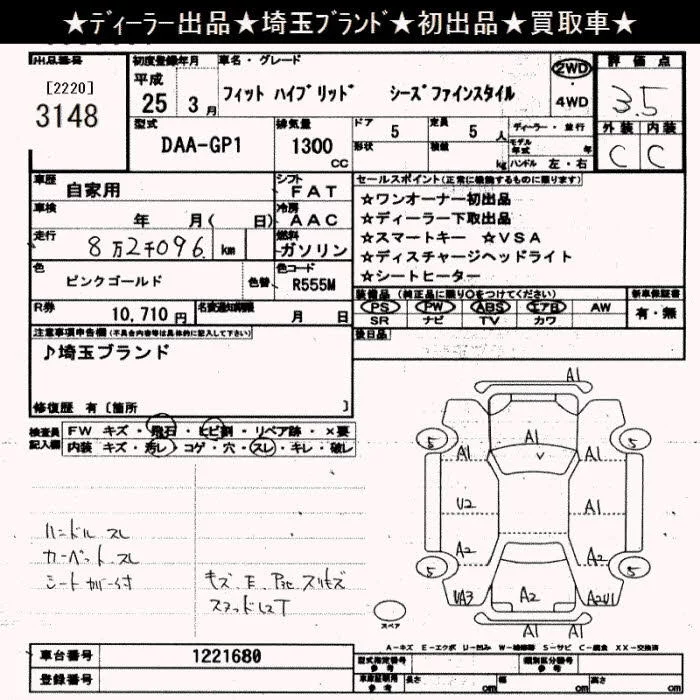 ★ディーラー出品★埼玉ブランド★初出品★買取車★
出品番号
[2220]
3148
初度登録年月
平成
25 3月
車名・グレード
フィット ハイブリッド シーズファインスタイル
2WD
・
4WD
評価点
3.5
外装 内装
C C
型式
DAA-GP1
排気量
1300
cc
ドア 5
定員 5 人
形状
積載 kg
ディーラー・並行
モデル年式 年
ハンドル 左・右
車歴
自家用
シフト
FAT
車検
年 月( 日)
冷房
AAC
走行
8万2千096 km
燃料
ガソリン
色
ピンクゴールド
色替
色コード
R555M
R券
10,710 円
月 日
セールスポイント(正常に機能するものに限ります)
☆ワンオーナー初出品
☆ディーラー下取出品
☆スマートキー ☆VSA
☆ディスチャージヘッドライト
☆シートヒーター
装備品(純正品に限り○をつけてください)
PS PW ABS エアB AW
SR ナビ TV カワ
新車保証書
有・無
後日品
注意事項申告欄(不具合内容等は具体的に記入して下さい)
♪埼玉ブランド
修復歴 有〔箇所 〕
検査員記入欄
FW キズ・飛石・ヒビ割・リペア跡・×要
内装 キズ・汚レ・コゲ・穴・スレ・キレ・破レ
ハンドル スレ
カーペット スレ
シートカバー付
キズ E Pac スリキズ
A1
5 5
A1 A1 A1
U2 A1
A2 A2
5 5
UA3 A2 A2U1
A1 A1
スペア
A-キズ E-エクボ U-凹み W-補修跡 S-サビ C-腐食 XX-交換済
車台番号
1221680
登録番号
型式指定番号
参考
類別区分番号
参考
車庫証明用
参考
長さ cm
幅 cm
高さ cm